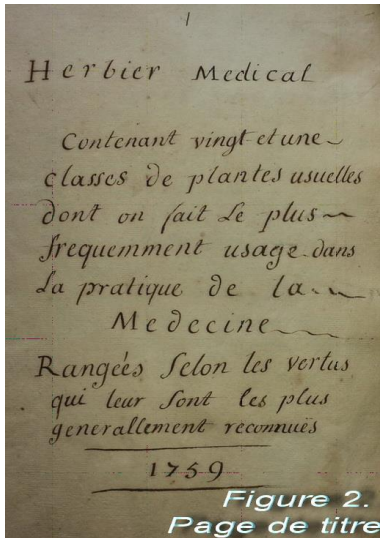 1
Herbier Medical
Contenant vingt et une
classes de plantes usuelles
dont on fait Le plus
frequemment usage dans
La pratique de la
Medecine
Rangées Selon les vertus
qui leur Sont les plus
generallement reconnuës
1759
Figure 2.
Page de titre